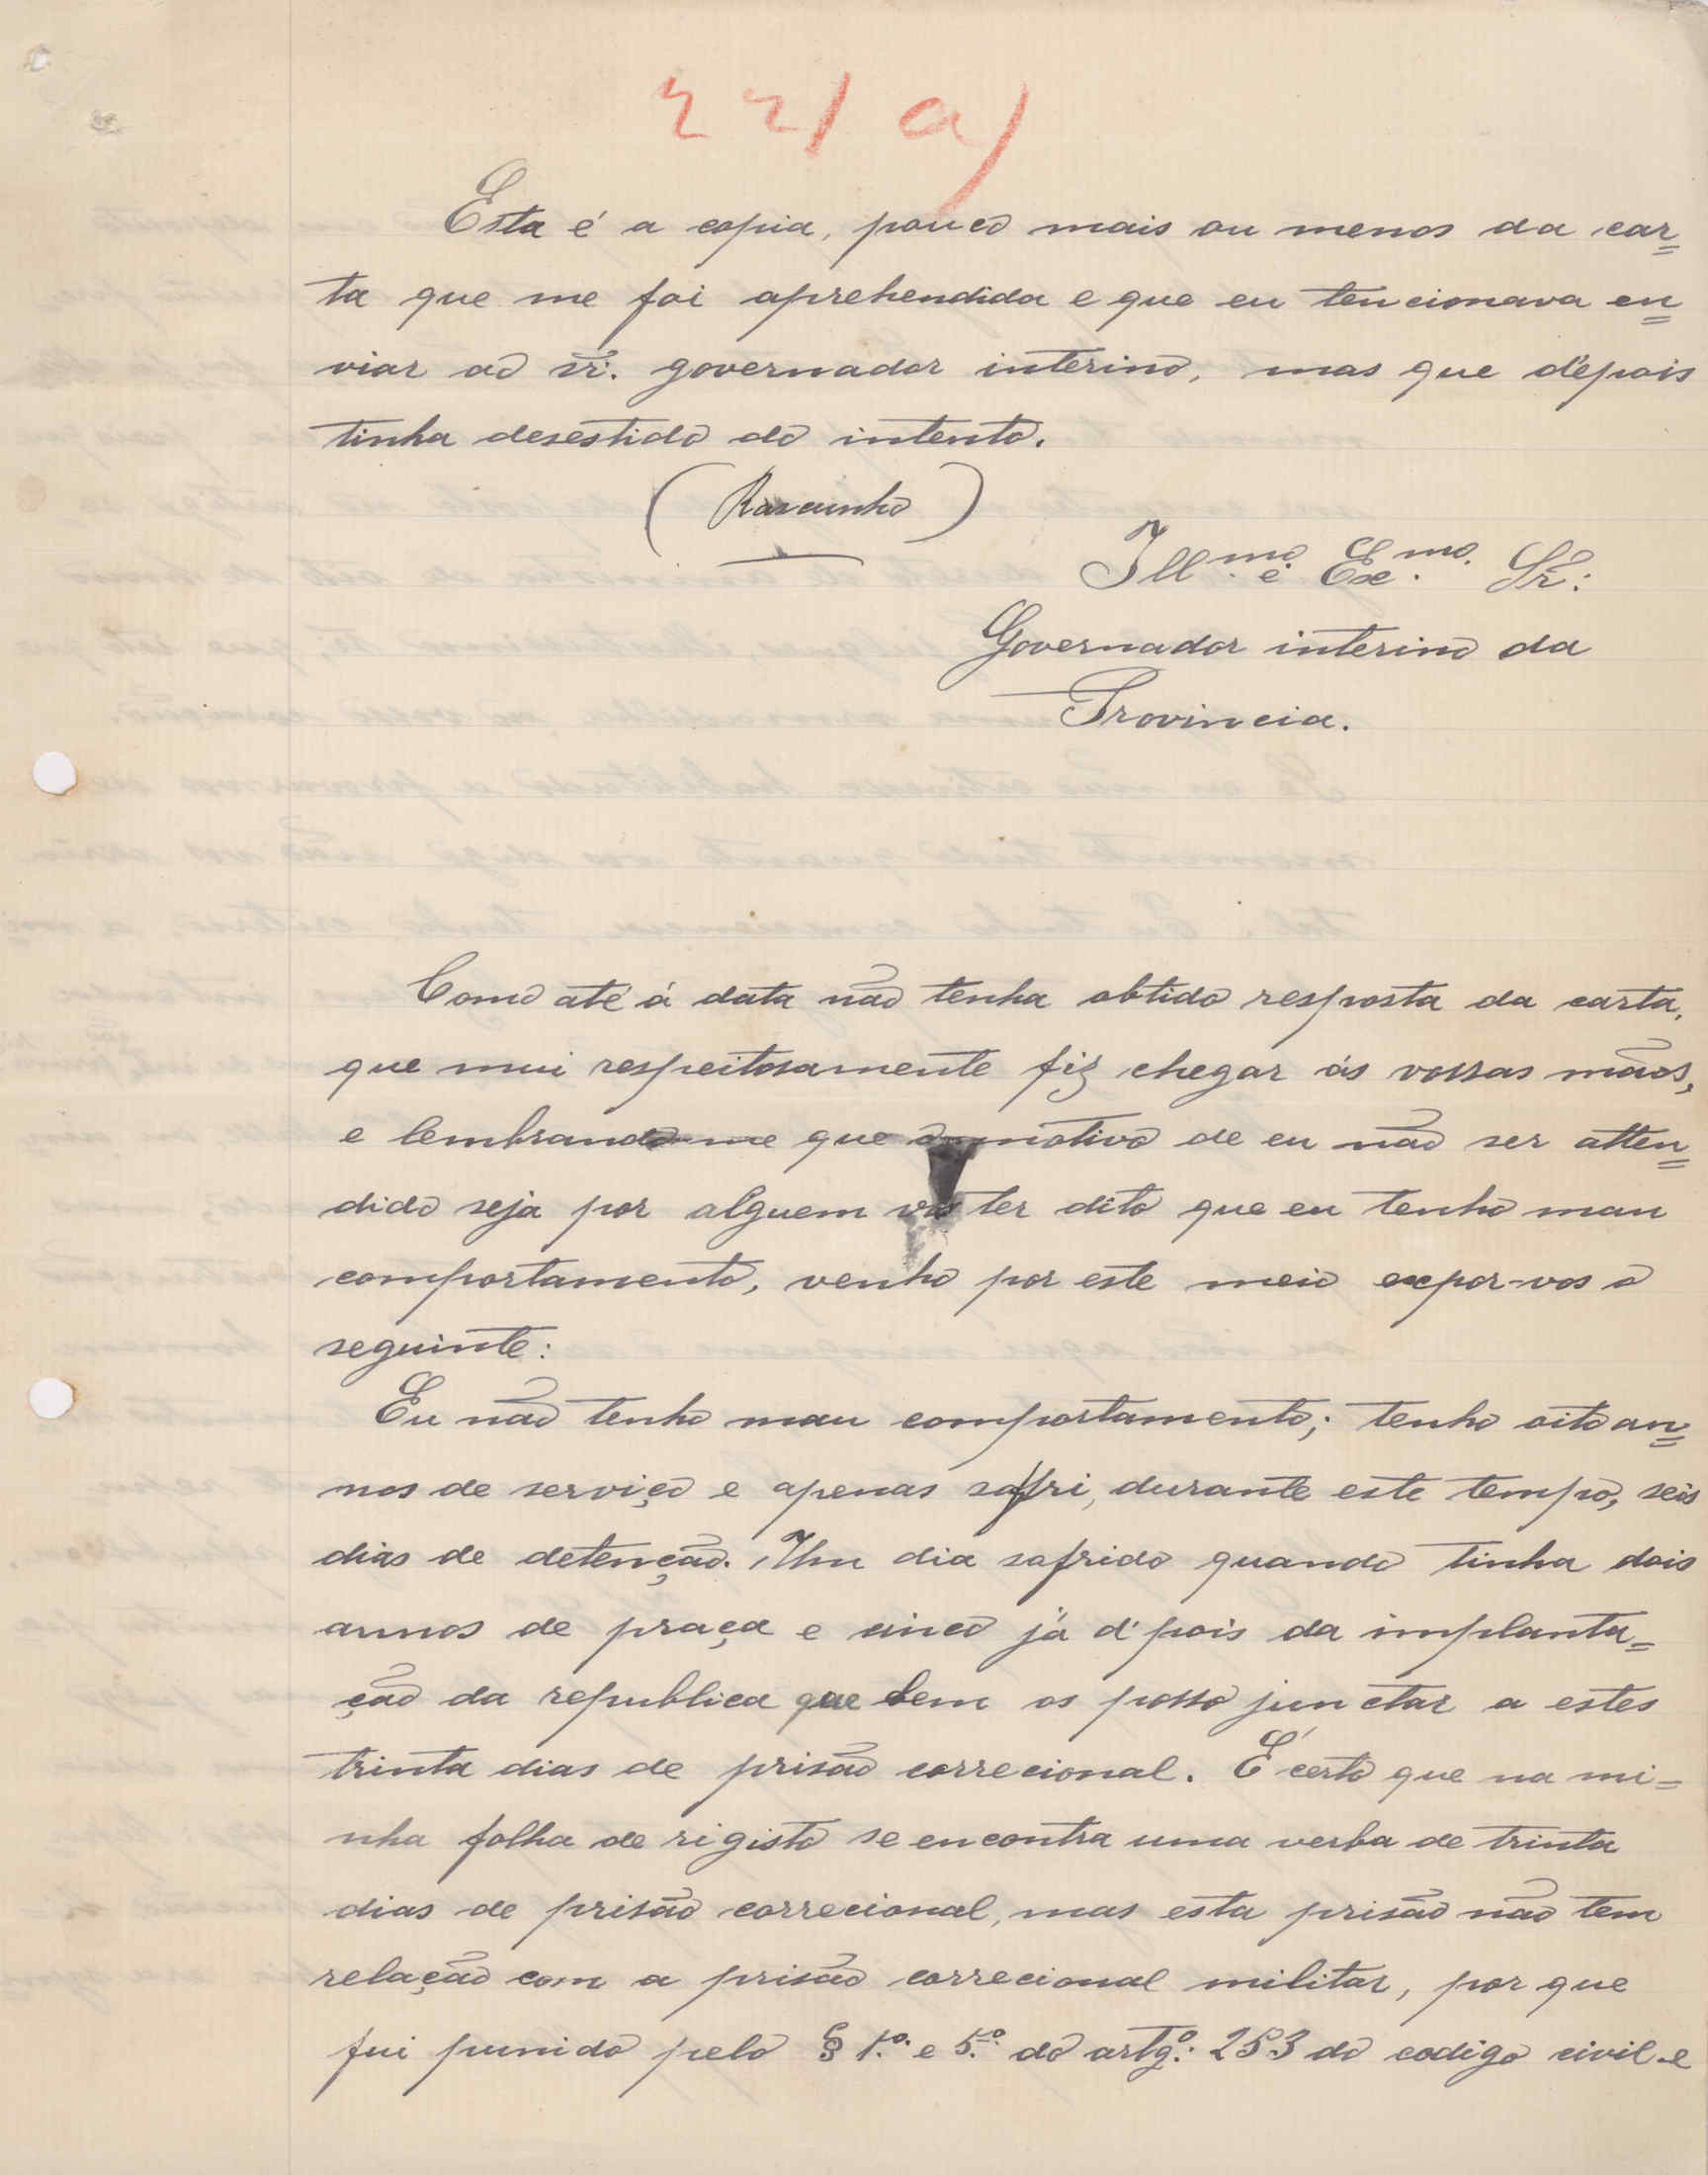 22/ a)
Esta é a copia, pouco mais ou menos da car=
ta que me foi aprehendida e que eu tencionava en=
viar ao sr. governador interino, mas que depois
tinha desestido do intento.
(Rascunho)
Ill.mo e Ex.mo Sr:
Governador interino da
Provincia.
Como até á data não tenha obtido resposta da carta,
que mui respeitosamente fiz chegar ás vossas mãos,
e lembrando-me que o motivo de eu não ser atten=
dido seja por alguem vos ter dito que eu tenho mau
comportamento, venho por este meio expor-vos o
seguinte:
Eu não tenho mau comportamento; tenho oito an=
nos de serviço e apenas soffri, durante este tempo, seis
dias de detenção. Um dia sofrido quando tinha dois
annos de praça e cinco já d'pois da implanta=
ção da republica que bem os posso junctar a estes
trinta dias de prisão correcional. É certo que na mi=
nha folha de rigisto se encontra uma verba de trinta
dias de prisão correcional, mas esta prisão não tem
relação com a prisão correcional militar, por que
fui punido pelo § 1.º e 5.º do artg.º: 253 do codigo civil e